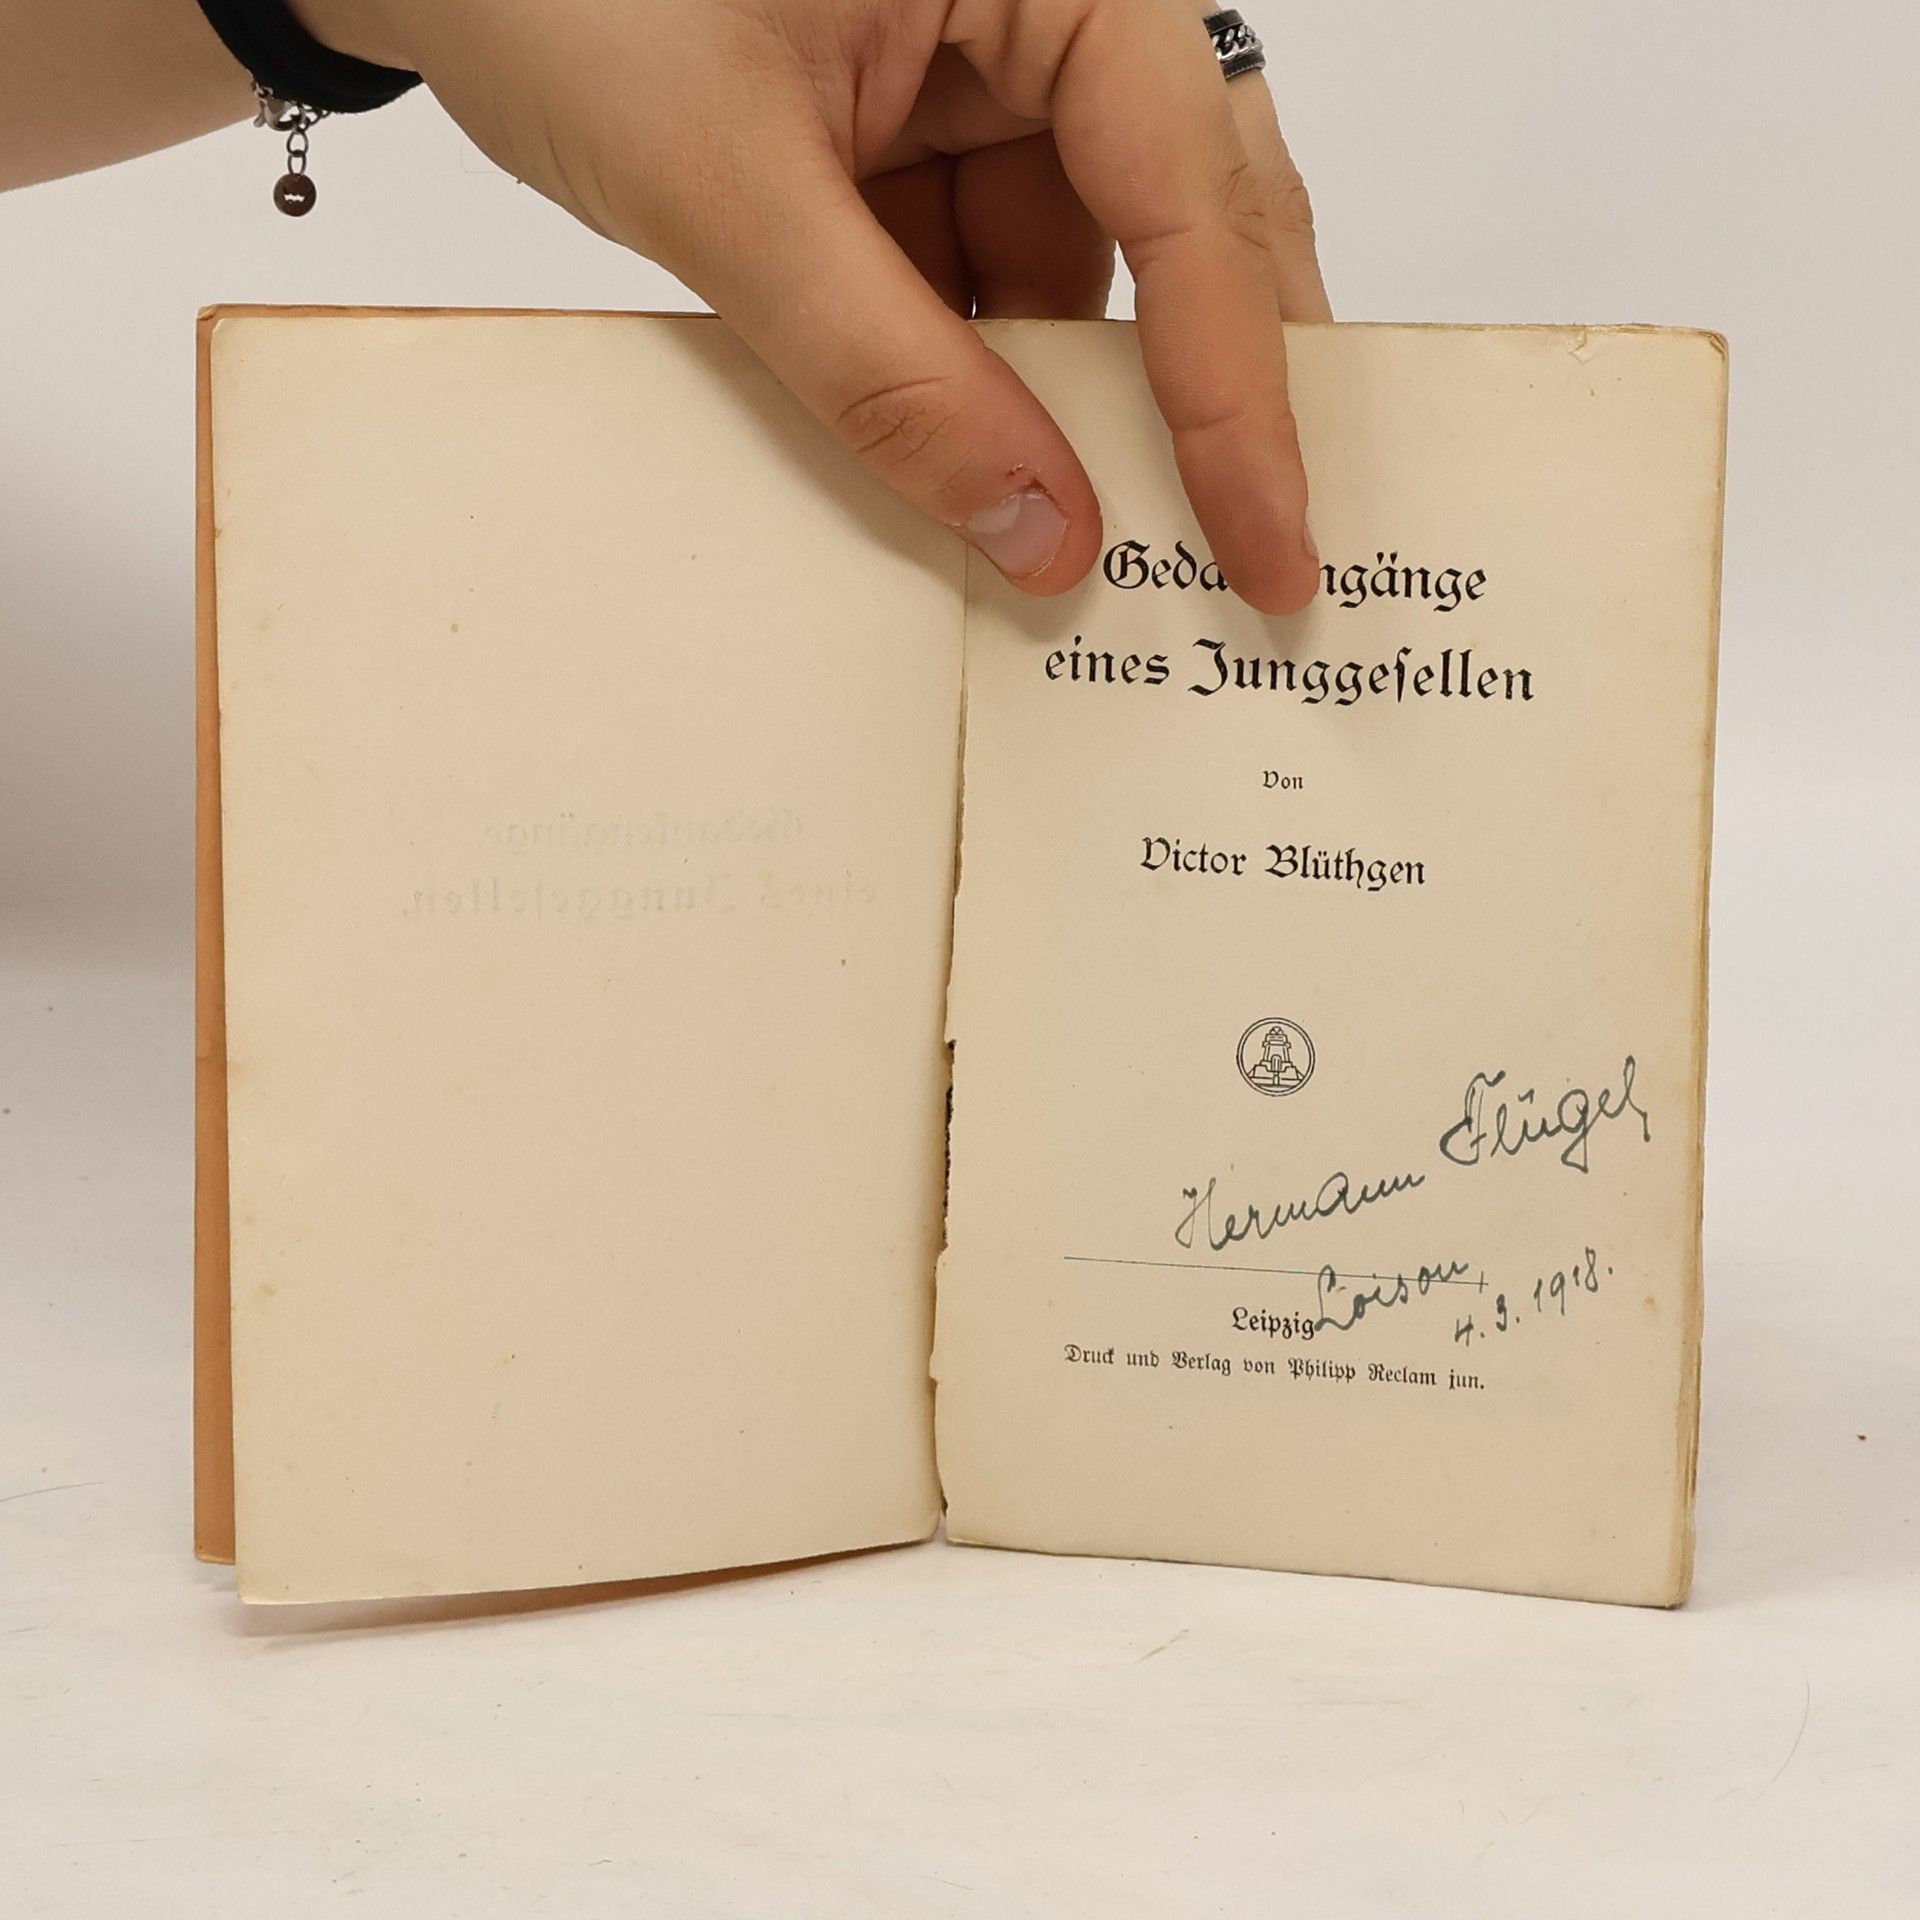 Gedankengänge
eines Junggesellen.
Geda ngänge
eines Junggesellen
Von
Victor Blüthgen
Hermann Flügel,
Loison, 4.3.1918.
Leipzig
Druck und Verlag von Philipp Reclam jun.